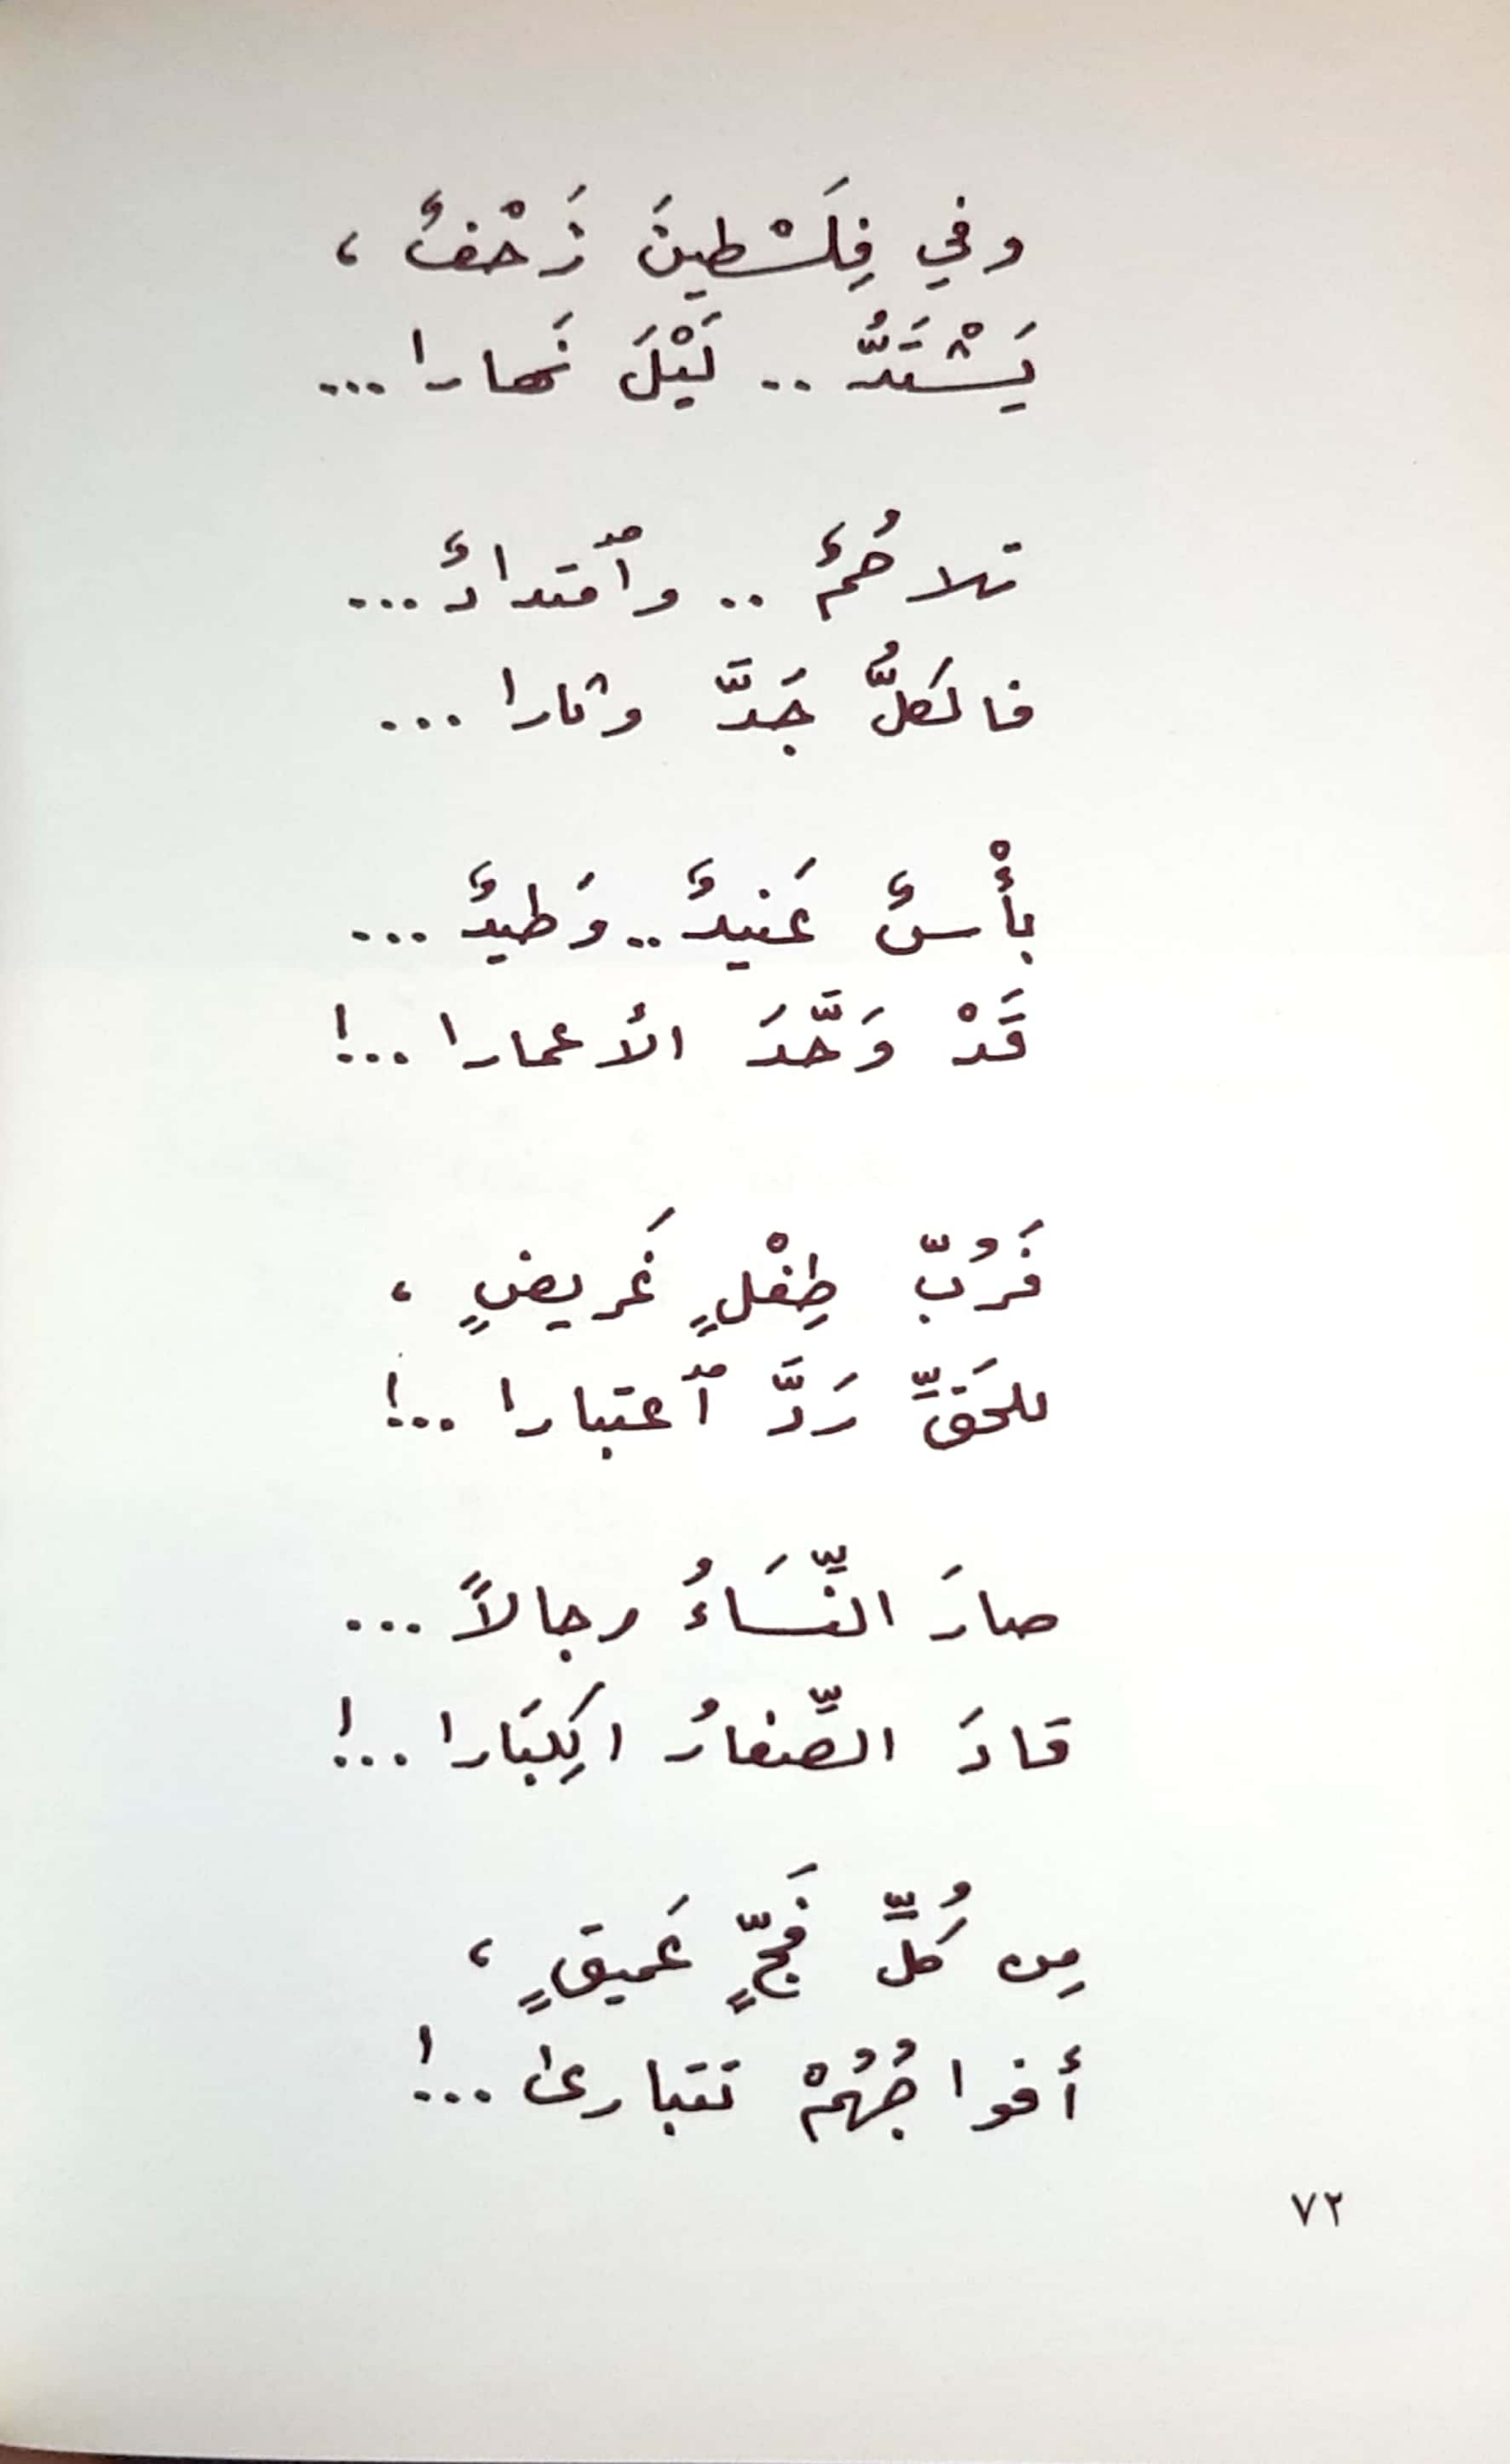 وفي فِلَسْطينَ زَحْفٌ ،
يَشْتَدُّ .. لَيْلَ نَهارا ...
تلاحُمٌ .. وٱمتدادٌ ...
فالكلُّ جَدَّ وثارا ...
بأْسٌ عَنيدٌ .. وَطيدٌ ...
قَدْ وَحَّدَ الأعمارا ...!
فَرُبّ طِفْلٍ غَريضٍ ،
للحَقِّ رَدَّ ٱعتبارا ...!
صارَ النِّسَاءُ رجالاً ...
قادَ الصِّغارُ الكِبَارا ...!
مِن كُلِّ فَجٍّ عَميقٍ ،
أفواجُهُمْ تتبارىٰ ...!
٧٢